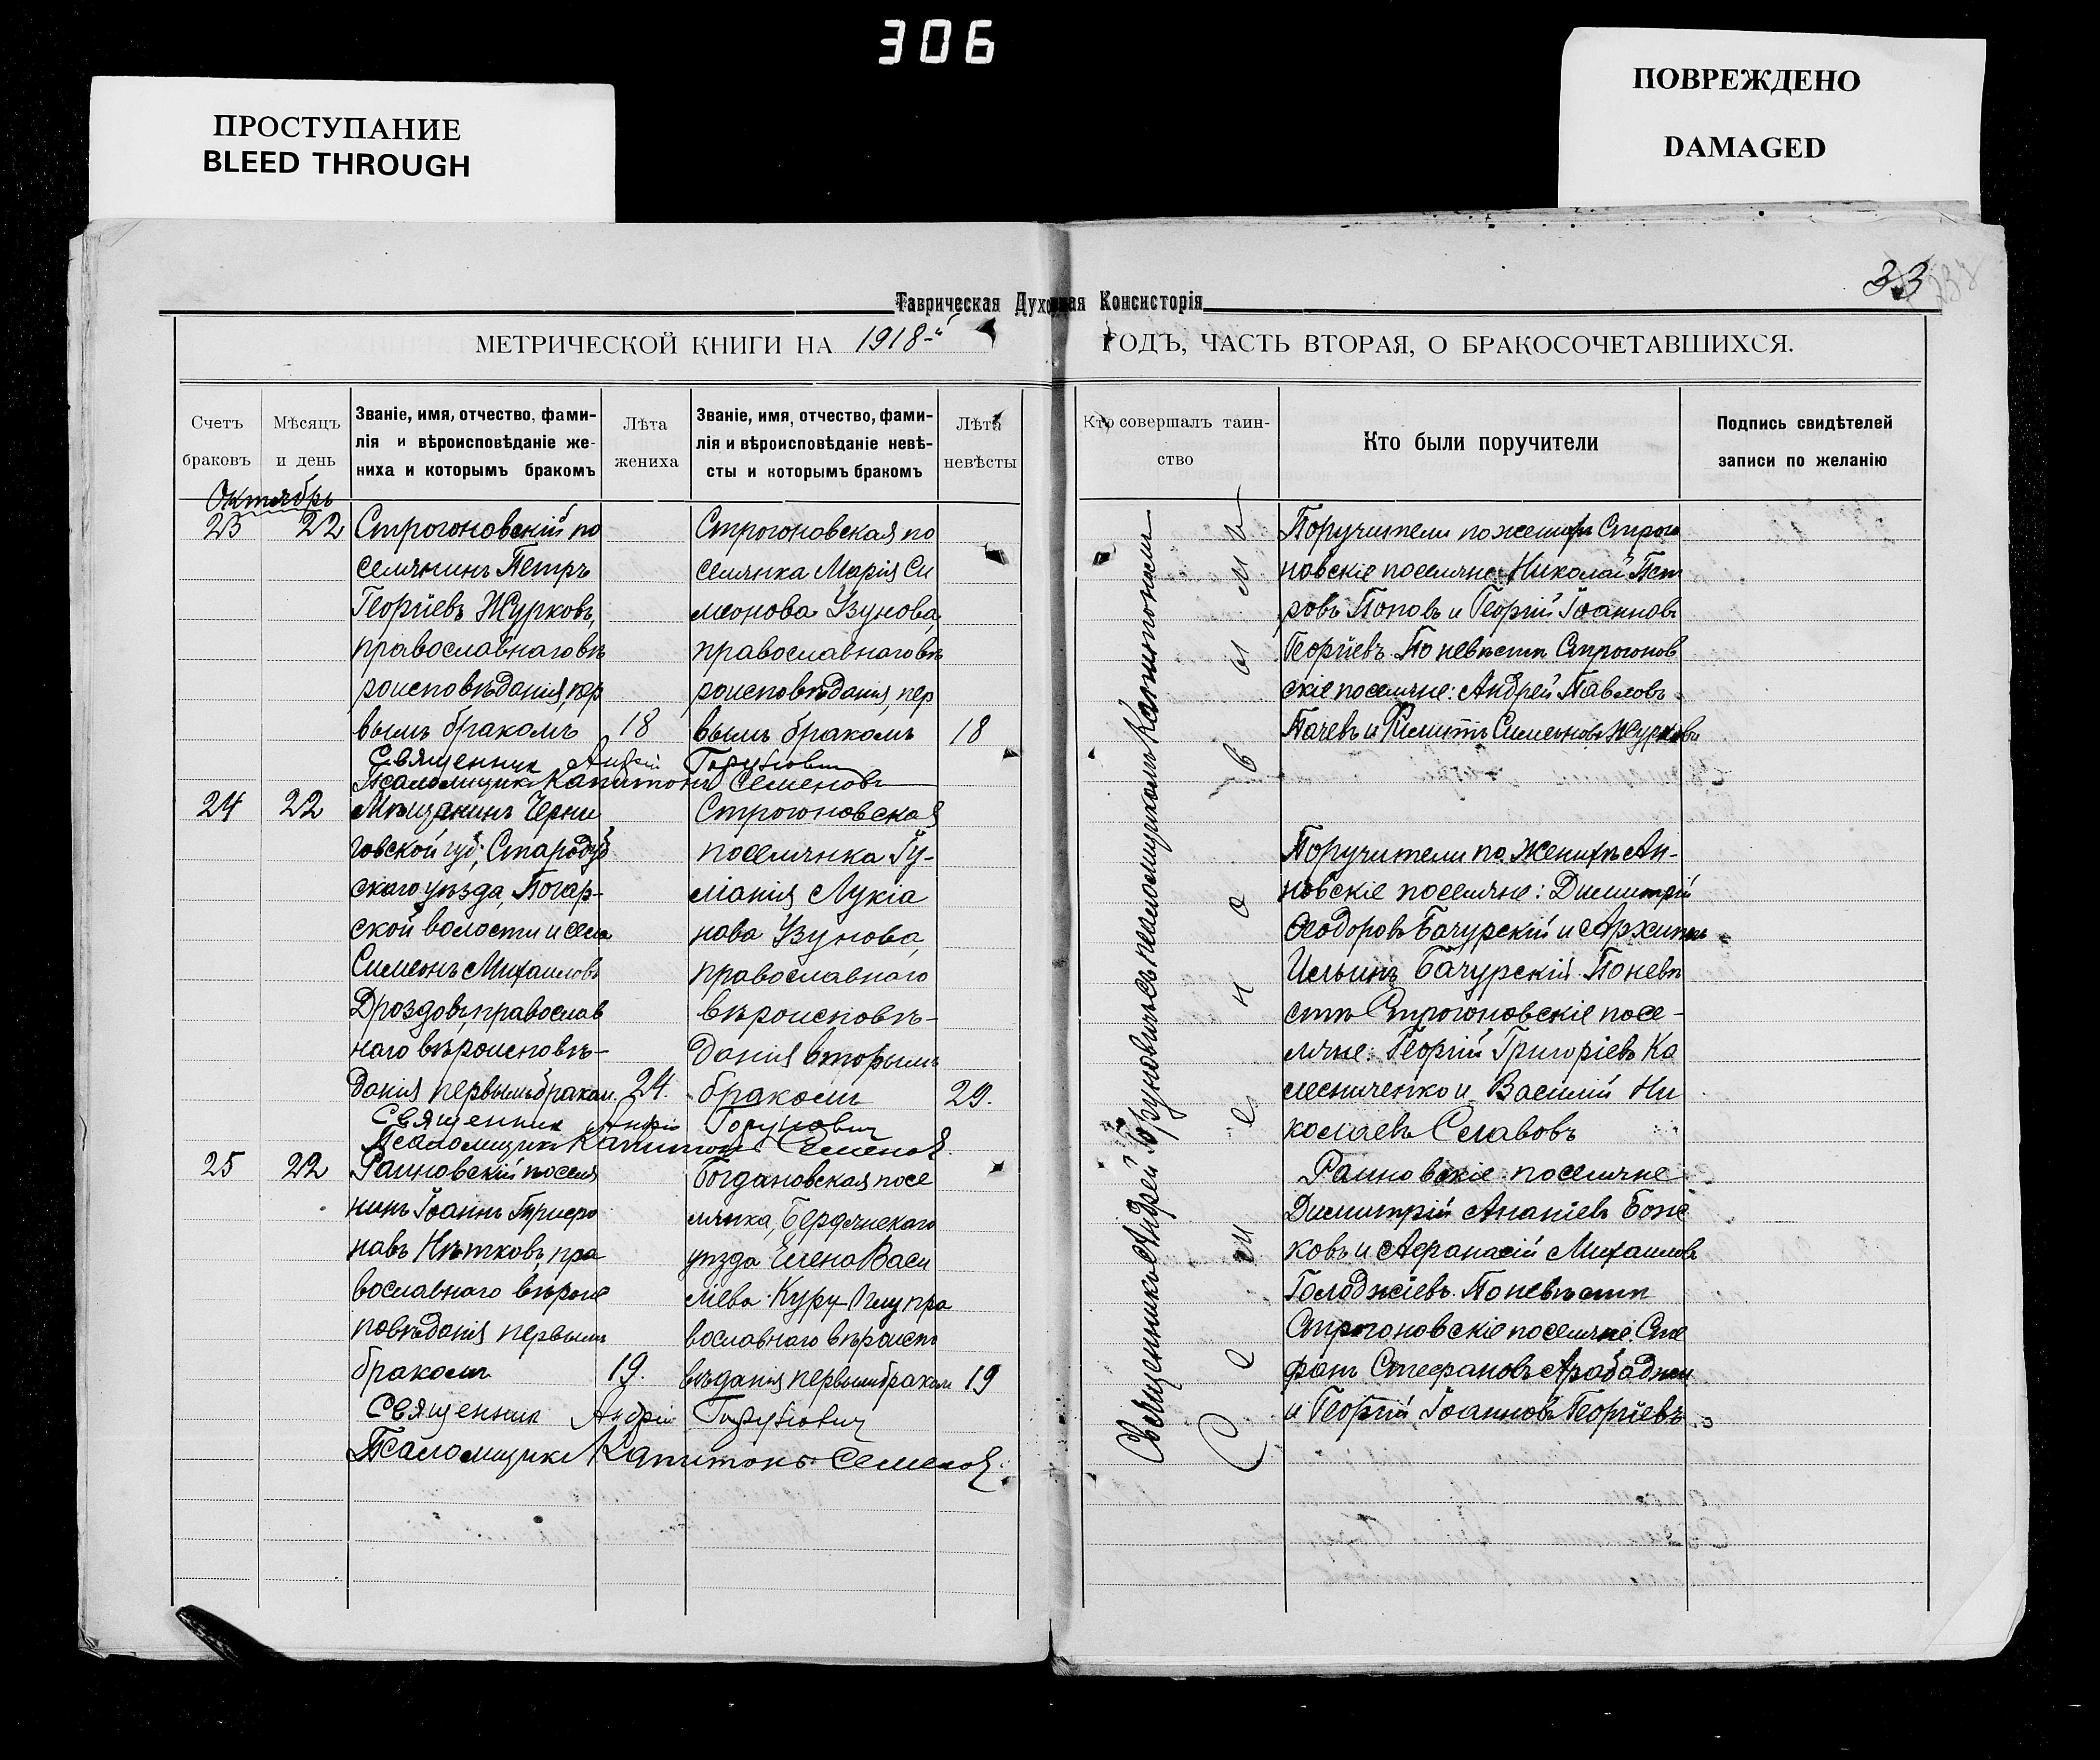 306
ПРОСТУПАНИЕ
BLEED THROUGH
ПОВРЕЖДЕНО
DAMAGED
33
Таврическая Духовная Консисторія
МЕТРИЧЕСКОЙ КНИГИ НА 1918-й ГОДЪ, ЧАСТЬ ВТОРАЯ, О БРАКОСОЧЕТАВШИХСЯ.
Счетъ браковъ
Мѣсяцъ и день
Званіе, имя, отчество, фами-
лія и вѣроисповѣданіе же-
ниха и которымъ бракомъ
Лѣта жениха
Званіе, имя, отчество, фами-
лія и вѣроисповѣданіе невѣ-
сты и которымъ бракомъ
Лѣта невѣсты
Кто совершалъ таин-
ство
Кто были поручители
Подпись свидѣтелей
записи по желанію
Октябрь
23 22
Строгоновскій по
селянинъ Петръ
Георгіевъ Журковъ,
православнаго вѣ
роисповѣданія, пер
вымъ бракомъ 18
Строгоновская по
селянка Марія Си
меонова Узунова,
православнаго вѣ
роисповѣданія, пер
вымъ бракомъ 18
Священник Андрій Горунович
Псаломщикъ Капитонъ Семеновъ
Поручители по женихѣ Строго
новскіе поселяне: Николай Пет
ровъ Поповъ и Георгій Іоанновъ
Георгіевъ. По невѣстѣ Строгонов
скіе поселяне: Андрей Павловъ
Пачевъ и Симеоновъ Журковъ
24 22
Мѣщанинъ Черни
говской губ; Стародуб
скаго уѣзда, Погар-
ской волости и села
Симеонъ Михаиловъ
Дроздовъ, православ
наго вѣроисповѣ-
данія первымъ браком. 24.
Строгоновская
поселянка Іу-
ліанія Лукіа
нова Узунова,
православнаго
вѣроисповѣ-
данія вторымъ
бракомъ 29.
Священник Андрій Горунович
Псаломщикъ Капитонъ Семенов
Поручители по женихѣ Ан-
новскіе поселяне: Димитрій
Ѳеодоровъ Бачурскій и Архиппъ
Ильинъ Бачурскій. По невѣ
стѣ Строгоновскіе посе-
ляне: Георгій Григоріевъ Ко
лесниченко и Василій Ни
колаевъ Славовъ
25 22
Раиновскій поселя
нинъ Іоаннъ
новъ Нѣтковъ, пра
вославнаго вѣроис
повѣданія первымъ
бракомъ 19.
Богдановская посе
лянка, Бердянскаго
уѣзда Елена Васи
лева Куру-Оглу пра
вославнаго вѣроиспо
вѣданія первымъ браком 19
Священник Андрій Горунович
Псаломщикъ Капитонъ Семенов.
Раиновскіе поселяне
Димитрій Ананіевъ Боже
ковъ и Афанасій Михаиловъ
Голоджіевъ. По невѣстѣ
Строгоновскіе поселяне: Сте
фанъ Стефановъ Арабаджи
и Георгій Іоанновъ Георгіевъ.
Священникъ Андрей Горуновичъ съ псаломщикомъ Капитономъ
Семеновымъ